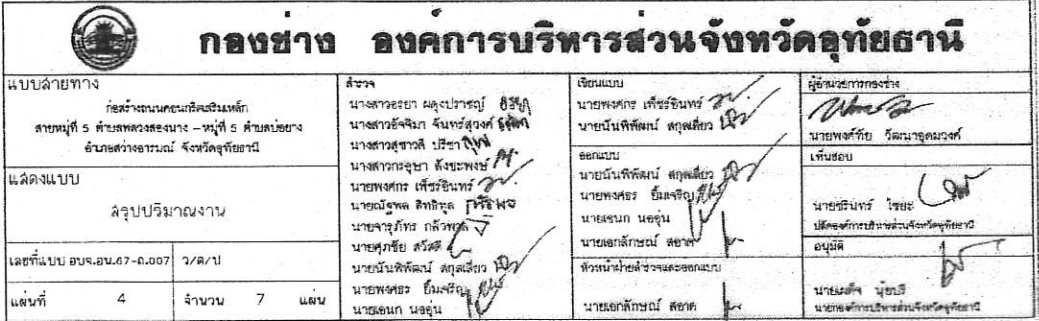 กองช่าง องค์การบริหารส่วนจังหวัดอุทัยธานี
แบบสายทาง
ก่อสร้างถนนคอนกรีตเสริมเหล็ก
สายหมู่ที่ 5 ตำบลพลวงสองนาง – หมู่ที่ 5 ตำบลบ่อยาง
อำเภอสว่างอารมณ์ จังหวัดอุทัยธานี
แสดงแบบ
สรุปปริมาณงาน
เลขที่แบบ อบจ.อน.67-ถ.007
ว/ด/ป
แผ่นที่ 4 จำนวน 7 แผ่น
สำรวจ
นางสาวอรยา ผดุงปราชญ์
นางสาวอัจจิมา จันทร์สุวงศ์
นางสาวสุชาวลี ปรีชา
นางสาวกรอุษา สังขะพงษ์
นายพงศกร เพ็ชรอินทร์
นายณัฐพล สิทธิทูล
นายจารุภัทร กลัวพาล
นายศุภชัย สวัสดี
นายนันพิพัฒน์ สกุลเสี่ยว
นายพงศธร ยิ้มเจริญ
นายเอนก นออุ่น
เขียนแบบ
นายพงศกร เพ็ชรอินทร์
นายนันพิพัฒน์ สกุลเสี่ยว
ออกแบบ
นายนันพิพัฒน์ สกุลเสี่ยว
นายพงศธร ยิ้มเจริญ
นายเอนก นออุ่น
นายเอกลักษณ์ สอาด
หัวหน้าฝ่ายสำรวจและออกแบบ
นายเอกลักษณ์ สอาด
ผู้อำนวยการกองช่าง
นายพงศ์ทัย วัฒนาอุดมวงค์
เห็นชอบ
นายชรินทร์ ไชยะ
ปลัดองค์การบริหารส่วนจังหวัดอุทัยธานี
อนุมัติ
นายเผด็จ นุ้ยปรี
นายกองค์การบริหารส่วนจังหวัดอุทัยธานี